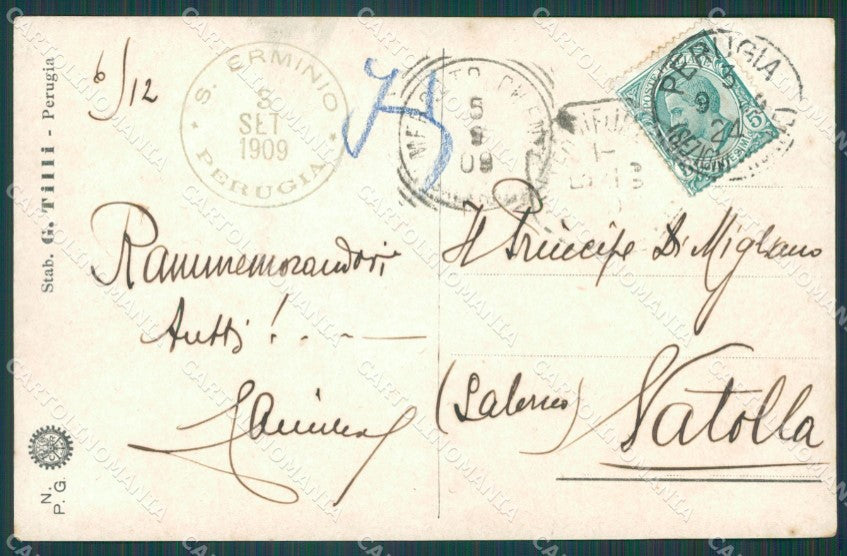 6/12
S. ERMINIO
3
SET
1909
PERUGIA
5
9
09
PERUGIA
9
24
Stab. G. Tilli - Perugia
Rammemorandovi
tutti! . . —
Il Principe Di Migliano
(Salerno)
Vatolla
N.
P. G.
CARTOLINOMANIA